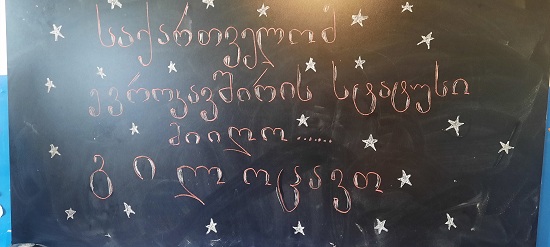 საქართველომ
ევროკავშირის სტატუსი
მიიღო......
გილოცავთ